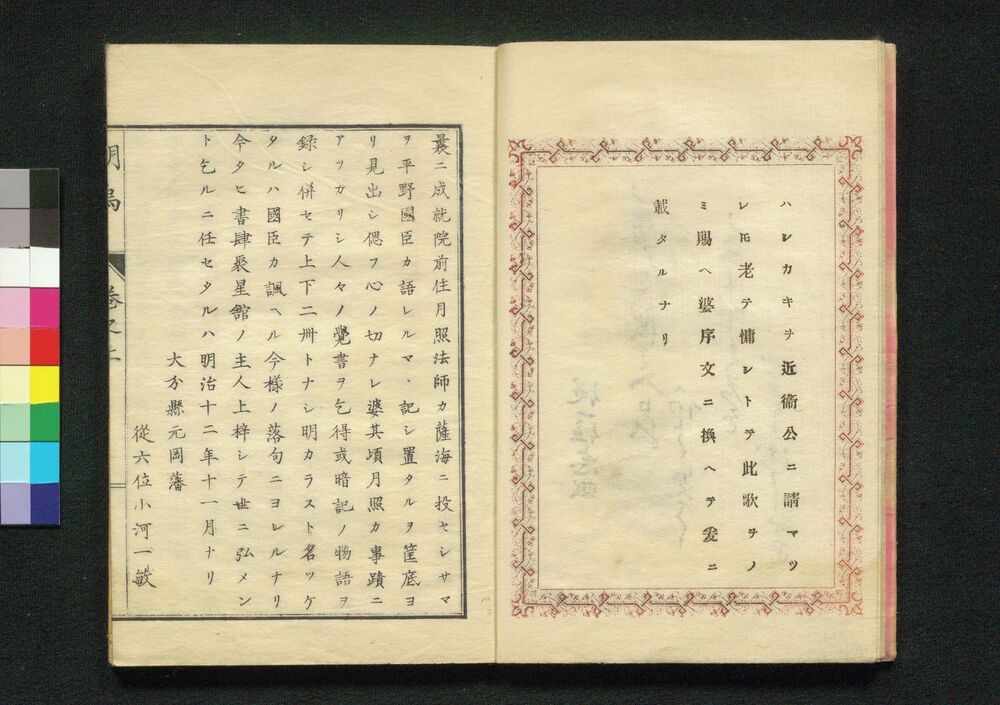 ハレカキヲ近衞公ニ請マツ
レ𪜈老テ慵シトテ此歌ヲノ
ミ賜ヘ婆序文ニ換ヘテ爰ニ
載タルナリ
曩ニ成就院前住月照法師カ薩海ニ投セシサマ
ヲ平野國臣カ語レルマヽ記シ置タルヲ筐底ヨ
リ見出シ偲フ心ノ切ナレ婆其頃月照カ事蹟ニ
アツカリシ人々ノ覺書ヲ乞得或暗記ノ物語ヲ
録シ併セテ上下二冊トナシ明カラスト名ッケ
タルハ國臣カ諷ヘル今樣ノ落句ニヨレルナリ
今タヒ書肆聚星館ノ主人上梓シテ世ニ弘メン
ト乞ルニ任セタルハ明治十二年十一月ナリ
大分縣元岡藩
從六位小河一敏
明烏
卷之上